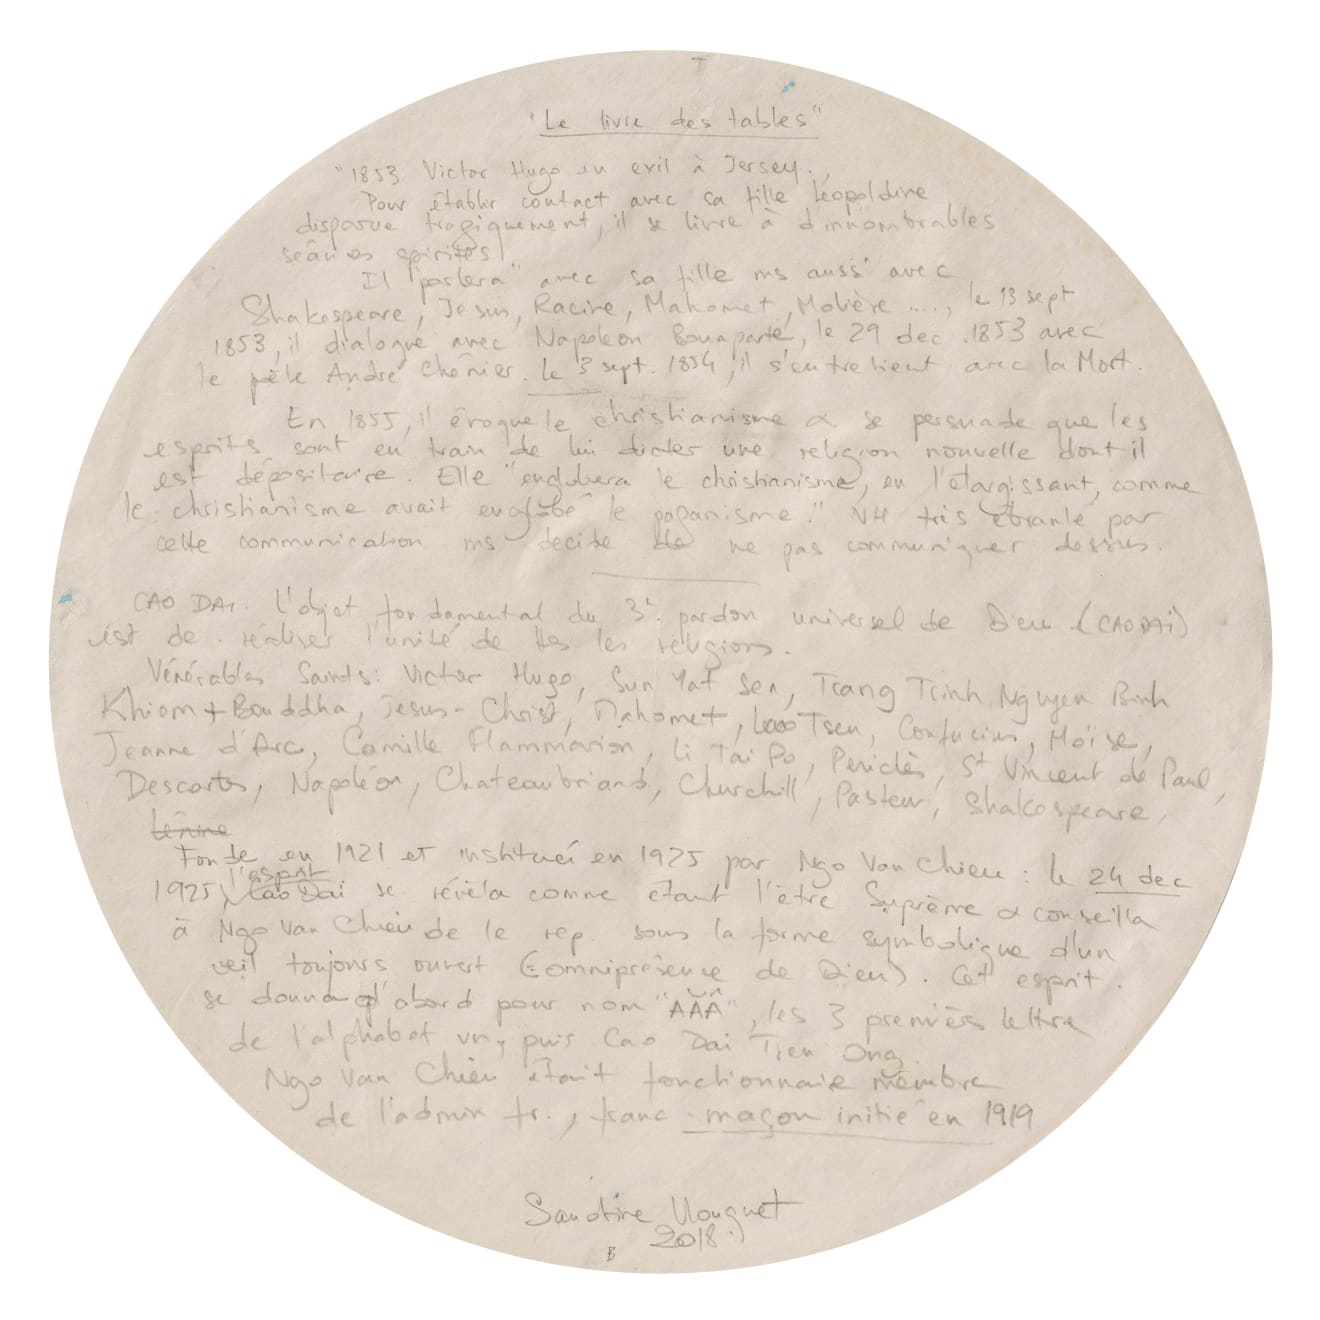 T
"Le livre des tables"
"1853 Victor Hugo en exil à Jersey.
Pour établir contact avec sa fille Léopoldine
disparue tragiquement, il se livre à d'innombrables
séances spirites!
Il "parlera" avec sa fille ms aussi avec
Shakespeare, Jesus, Racine, Mahomet, Molière ...., le 13 sept
1853, il dialogue avec Napoléon Bonaparte, le 29 dec. 1853 avec
le poète André Chénier. Le 3 sept. 1854, il s'entretient avec la Mort.
En 1855, il évoque le christianisme & se persuade que les
esprits sont en train de lui dicter une religion nouvelle dont il
est dépositaire. Elle "englobera le christianisme, en l'élargissant, comme
le christianisme avait englobé le paganisme." VH très ébranlé par
cette communication ms decide de ne pas communiquer dessus.
CAO DAI. L'objet fondamental du 3è pardon universel de Dieu (CAODAI)
est de réaliser l'unité de ttes les religions.
Vénérables Saints: Victor Hugo, Sun Yat Sen, Trang Trinh Nguyen Binh
Khiem + Bouddha, Jesus-Christ, Mahomet, Lao Tseu, Confucius, Moïse,
Jeanne d'Arc, Camille Flammarion, Li Tai Po, Periclès, St Vincent de Paul,
Descartes, Napoléon, Chateaubriand, Churchill, Pasteur, Shakespeare,
Lénine
Fondé en 1921 et institué en 1925 par Ngo Van Chieu : le 24 dec
l'esprit
1925, Cao Dai se révèla comme étant l'être Suprème & conseilla
à Ngo Van Chieu de le rep. sous la forme symbolique d'un
oeil toujours ouvert (omniprésence de Dieu). Cet esprit
se donna d'abord pour nom "AĂÂ", les 3 premières lettre
de l'alphabet vn, puis Cao Dai Tien Ong.
Ngo Van Chieu était fonctionnaire membre
de l'admin fr., franc-maçon initié en 1919
Sandrine Llouquet
2018.
B